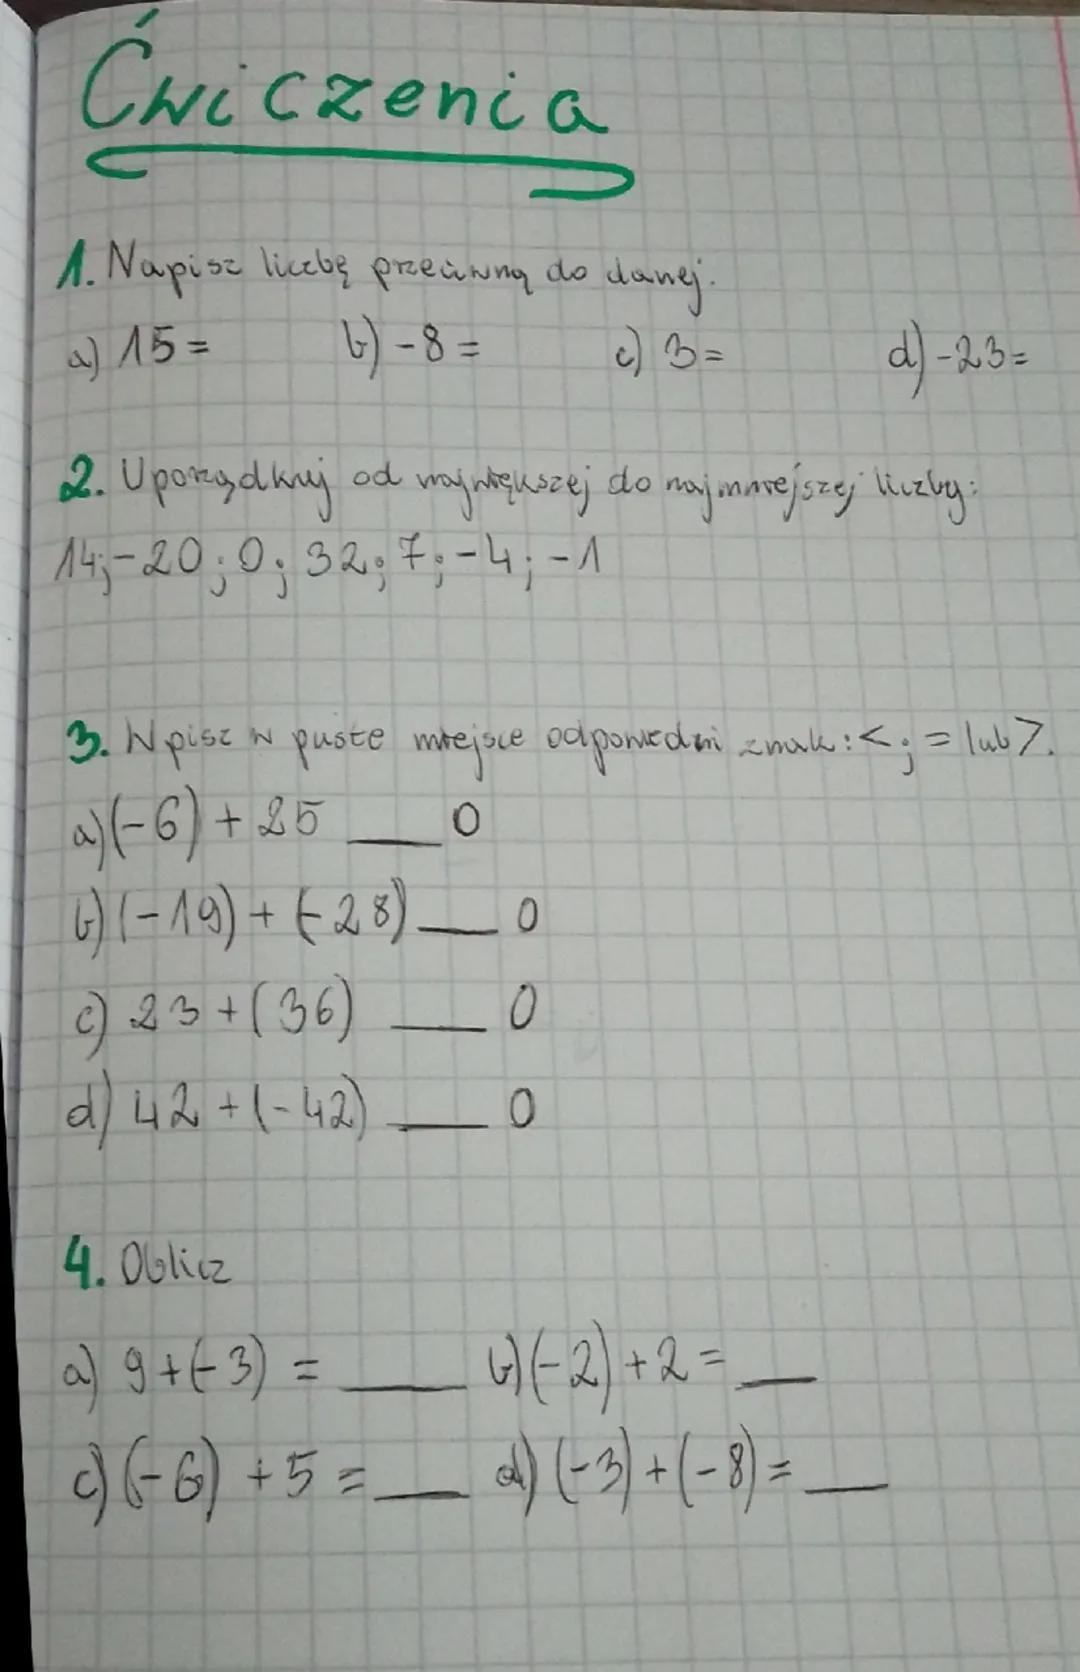 Ćwiczenia
1. Napisz liczbę przeciwną do danej.
a) 15= b) -8= c) 3= d) -23=
2. Uporządkuj od największej do najmniejszej liczby:
14;-20;0;32;7;-4;-1
3. Wpisz w puste miejsce odpowiedni znak: <; = lub >.
a) (-6)+25 ___ 0
b) (-19)+(-28) ___ 0
c) 23+(36) ___ 0
d) 42+(-42) ___ 0
4. Oblicz
a) 9+(-3) = ___ b) (-2)+2= ___
c) (-6)+5= ___ d) (-3)+(-8)= ___